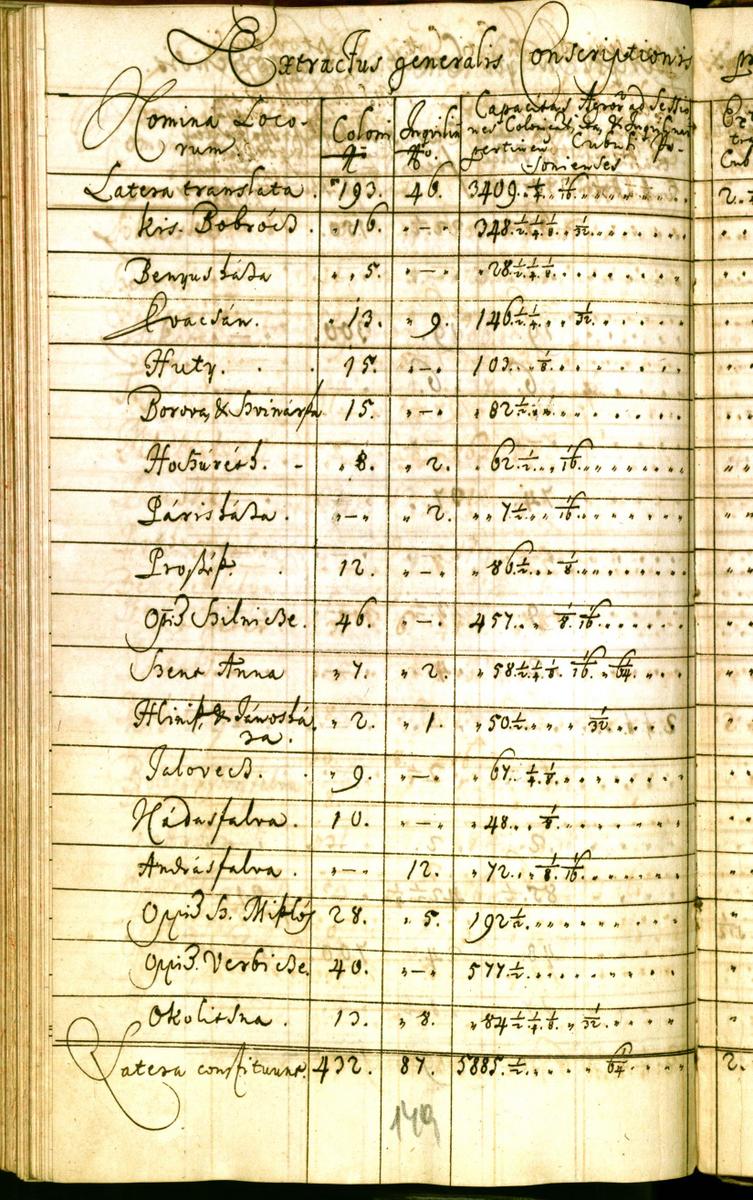 Extractus generalis Conscriptionis
Nomina Loco-
rum.
Coloni
No.
Inquilin
No.
Capacitas Agror ad Sessio
nes
pertinen Cubul. Po-
sonienses
Latera translata . 193. 46. 3409. 1/4 1/16
Kis Bobrócz . 16. - 348. 1/2 1/4 1/8 1/32
Benyusháza 5. - 28. 1/2 1/4 1/8
Kvacsán. 13. 9. 146. 1/2 1/4 1/32
Huty. 15. - 103. 1/8
Borova, & Svinárka 15. - 82 1/2
Hochúrész. 8. 2. 62. 1/2 1/16
Párisháza . - 2. 7 1/2 1/16
Prosék. 12. - 86 1/2 1/8
Oppid Szilnicze. 46. - 457. 1/8 1/16
Szent Anna 7. 2. 58 1/2 1/4 1/8 1/16 1/64
Hlinik, & Jánoshá
za. 2. 1. 50 1/2 1/32
Jalovecz. 9. - 67. 1/4 1/8
Nádasfalva. 10. - 48. 1/8
Andrásfalva . - 12. 72. 1/8 1/16
Oppid. Sz. Miklós 28. 5. 192 1/2
Oppid. Verbicze. 40. - 577 1/2
Okolitsna . 13. 8. 84 1/2 1/4 1/8 1/32
Latera constituunt. 432. 87. 5885. 1/2 1/64
149